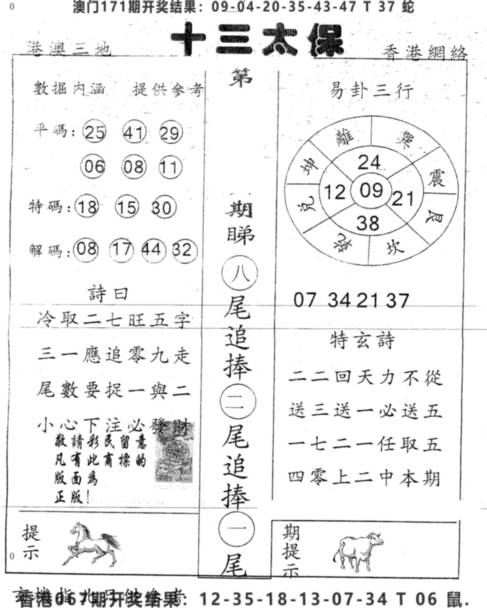 澳门171期开奖结果：09-04-20-35-43-47 T 37 蛇
十三太保
港澳三地
香港網絡
數据内涵 提供參考
平碼：25 41 29
06 08 11
特碼：18 15 30
解碼：08 17 44 32
詩曰
冷取二七旺五字
三一應追零九走
尾數要捉一與二
小心下注必發財
敬請彩民留意
凡有此商標的
版面為
正版！
提示
第
期
睇
八
尾
追
捧
二
尾
追
捧
一
尾
易卦三行
離 巽 震 艮 坎 乾 兌 坤
24
12 09 21
38
07 34 21 37
特玄詩
二二回天力不從
送三送一必送五
一七二一任取五
四零上二中本期
期提示
香港067期开奖结果：12-35-18-13-07-34 T 06 鼠.